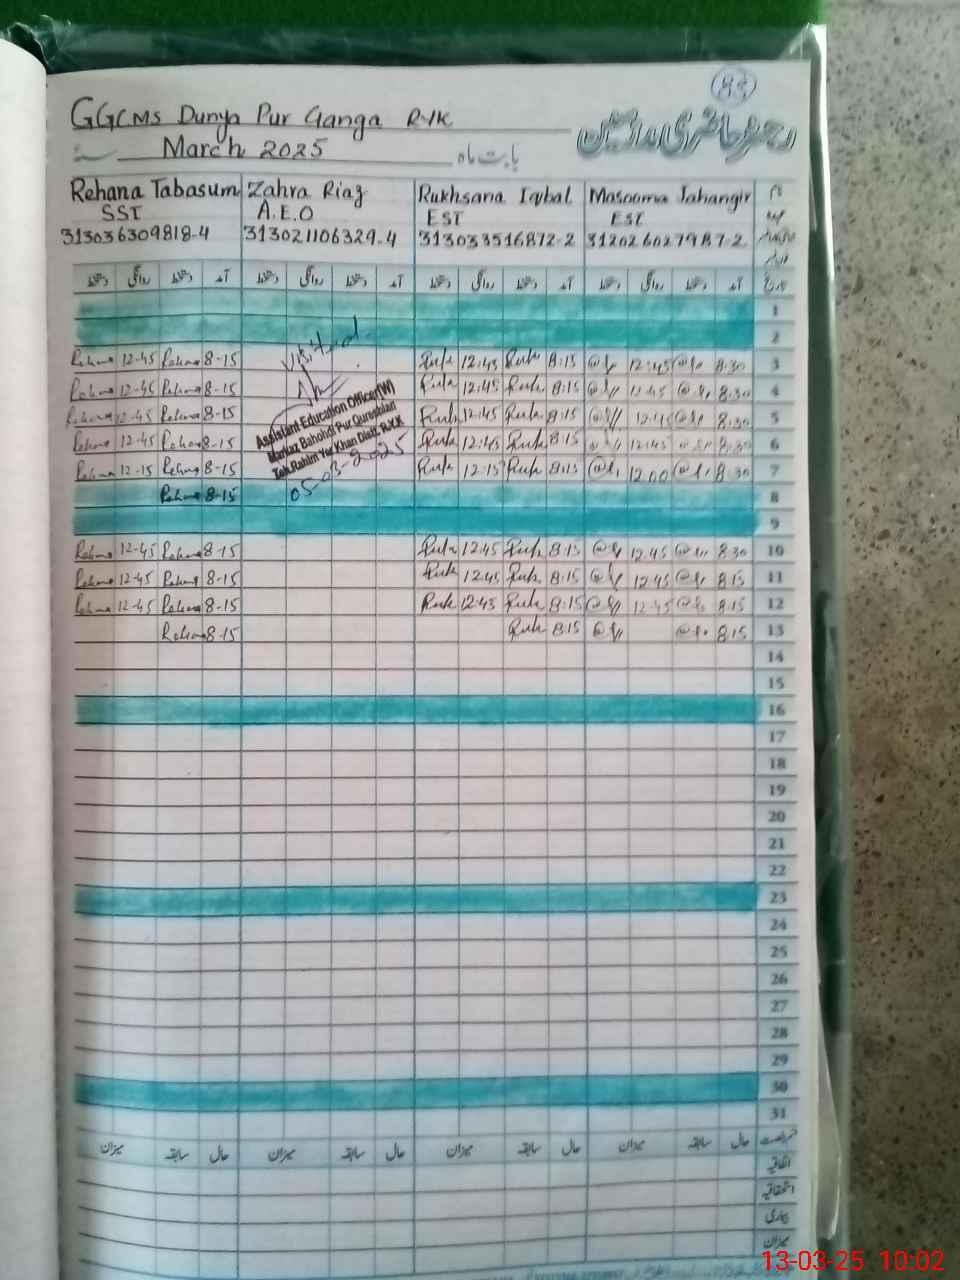 83
GGCMS Dunya Pur Ganga RYK
رجسٹر حاضری مدرسین
March 2025 بابت ماہ
Rehana Tabasum Zahra Riaz Rukhsana Iqbal Masooma Jahangir نام
SST A.E.O EST EST عہدہ
313036309818-4 313021106329-4 313033516872-2
دستخط روانگی دستخط آمد دستخط روانگی دستخط آمد دستخط روانگی دستخط آمد دستخط روانگی دستخط آمد تاریخ
1
2
Visited
Rehana 12-45 Rehana 8-15 Ruk 12:45 Ruk 8:15 12:45 8:30 3
Rehana 12-45 Rehana 8-15 Ruk 12:45 Ruk 8:15 12:45 8:30 4
Rehana 12-45 Rehana 8-15 Ruk 12:45 Ruk 8:15 12:45 8:30 5
Rehana 12-45 Rehana 8-15 Ruk 12:45 Ruk 8:15 12:45 8:30 6
Rehana 12-15 Rehana 8-15 Ruk 12:15 Ruk 8:15 12:00 8:30 7
Assistant Education Officer(W)
Markaz Bahohdi Pur Qureshian
Teh.Rahim Yar Khan Distt. R.Y.K
05-03-2025
Rehana 8-15 8
9
Rehana 12-45 Rehana 8-15 Ruk 12:45 Ruk 8:15 12:45 8:30 10
Rehana 12-45 Rehana 8-15 Ruk 12:45 Ruk 8:15 12:45 8:15 11
Rehana 12-45 Rehana 8-15 Ruk 12:45 Ruk 8:15 12:45 8:15 12
Rehana 8-15 Ruk 8:15 8:15 13
14
15
16
17
18
19
20
21
22
23
24
25
26
27
28
29
30
31
میزان سابقہ حال میزان سابقہ حال میزان سابقہ حال میزان سابقہ حال
اتفاقیہ
استحقاقیہ
بیماری
میزان
13-03-25 10:02